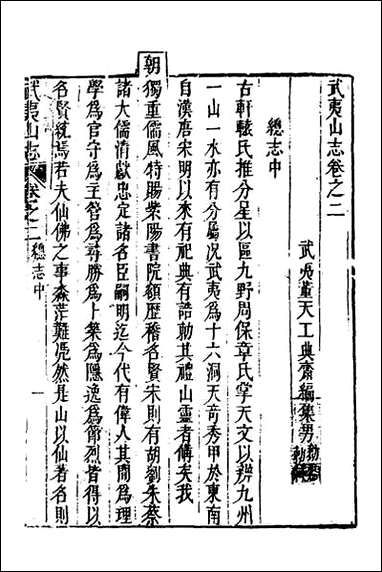 武夷山志卷之二
武夷董天工典齋編集男
總志中
古軒轅氏推分星以區九野周保章氏掌天文以辨九州
一山一水亦有分屬况武夷為十六洞天奇秀甲於東南
自漢唐宋明以來有祀典有誥勅其禮山靈者備矣我
朝獨重儒風特賜紫陽書院額歷稽名賢未則有胡劉朱蔡
諸大儒清獻忠定諸名臣嗣明迄今代有偉人其間為理
學為官守為主管為尋勝為卜築為隱逸為節烈皆得以
名賢統焉若夫仙佛之事森茫難憑然是山以仙著名則
武夷山志 卷之二 總志中 一